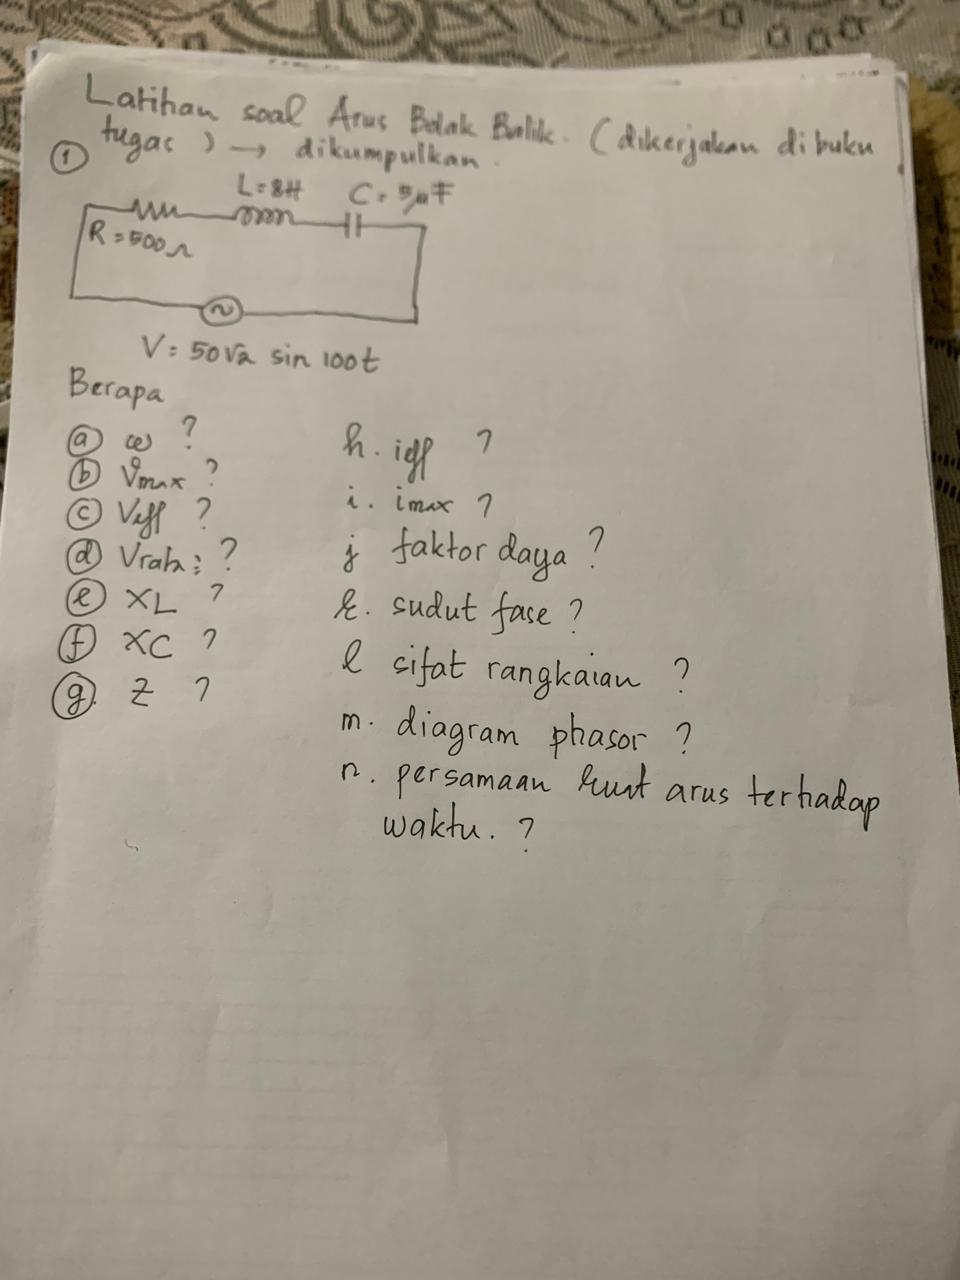 Latihan soal Arus Bolak Balik. (dikerjakan di buku
tugas) → dikumpulkan.
①
L = 8H C = 5μF
R = 500Ω
~
V = 50√2 sin 100t
Berapa
ⓐ ω ?
ⓑ Vmax ?
ⓒ Veff ?
ⓓ Vrata2 ?
ⓔ XL ?
ⓕ XC ?
ⓖ. Z ?
h. ieff ?
i. imax ?
j faktor daya ?
k. sudut fase ?
l sifat rangkaian ?
m. diagram phasor ?
n. persamaan kuat arus terhadap
waktu. ?